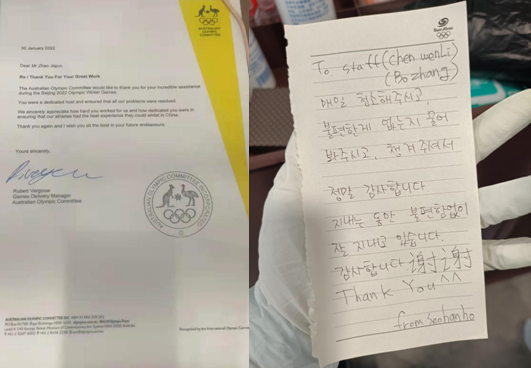 AUSTRALIAN
OLYMPIC
COMMITTEE
30 January 2022
Dear Mr Zhao Jiajun
Re / Thank You For Your Great Work
The Australian Olympic Committee would like to thank you for your incredible assistance
during the Beijing 2022 Olympic Winter Games.
You were a dedicated host and ensured that all our problems were resolved.
We sincerely appreciate how hard you worked for us and how dedicated you were in
ensuring that our athletes had the best experience they could whilst in China.
Thank you again and I wish you all the best in your future endeavours
Yours sincerely,
Robert Vergouw
Games Delivery Manager
Australian Olympic Committee
AUSTRALIAN OLYMPIC COMMITTEE
To staff (Chen wenLi)
(Bo zhang)
매일 청소해주시고,
불편한게 없는지 물어
봐주시고, 챙겨주셔서
정말 감사합니다
지내는 동안 불편함없이
잘 지내고 있습니다.
감사합니다 謝謝
Thank You ^^
from Seohanho